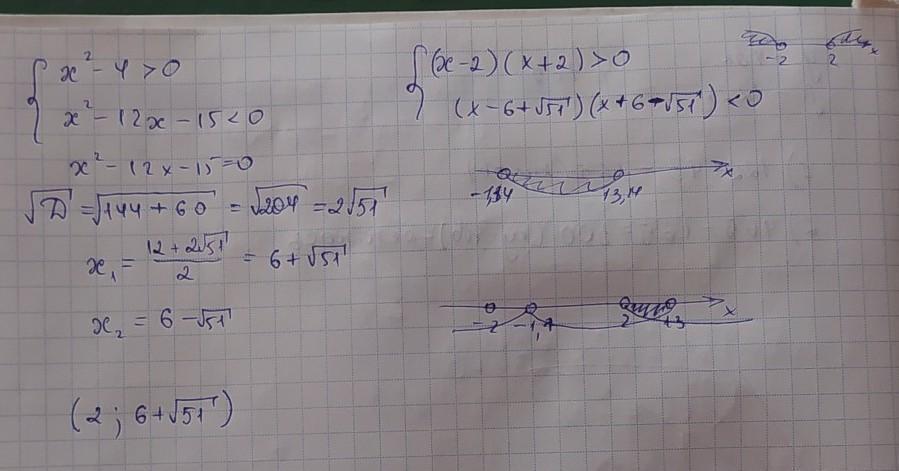 { x² - 4 > 0
x² - 12x - 15 < 0
x² - 12x - 15 = 0
√D = √144 + 60 = √204 = 2√51
x₁ = (12 + 2√51)/2 = 6 + √51
x₂ = 6 - √51
(2; 6 + √51)
{ (x - 2)(x + 2) > 0
(x - 6 + √51)(x + 6 - √51) < 0
-2 2 x
13,14 x
-2 -1,1 2 13 x